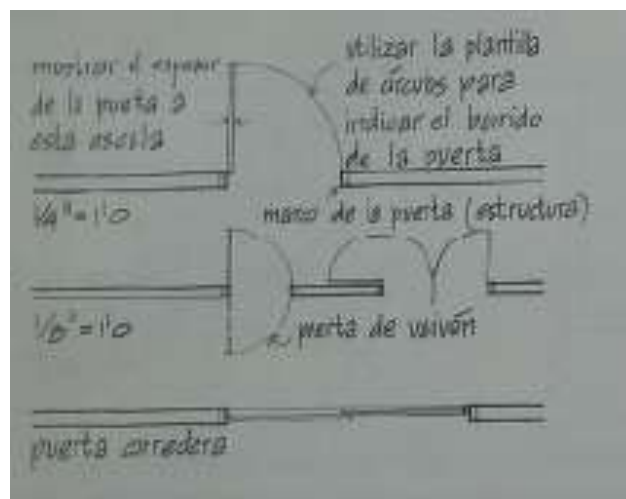 mostrar el espesor
de la puerta a
esta escala
utilizar la plantilla
de árcuos para
indicar el barrido
de la puerta
1/4" = 1'0
marco de la puerta (estructura)
1/8" = 1'0
puerta de vaivén
puerta corredera